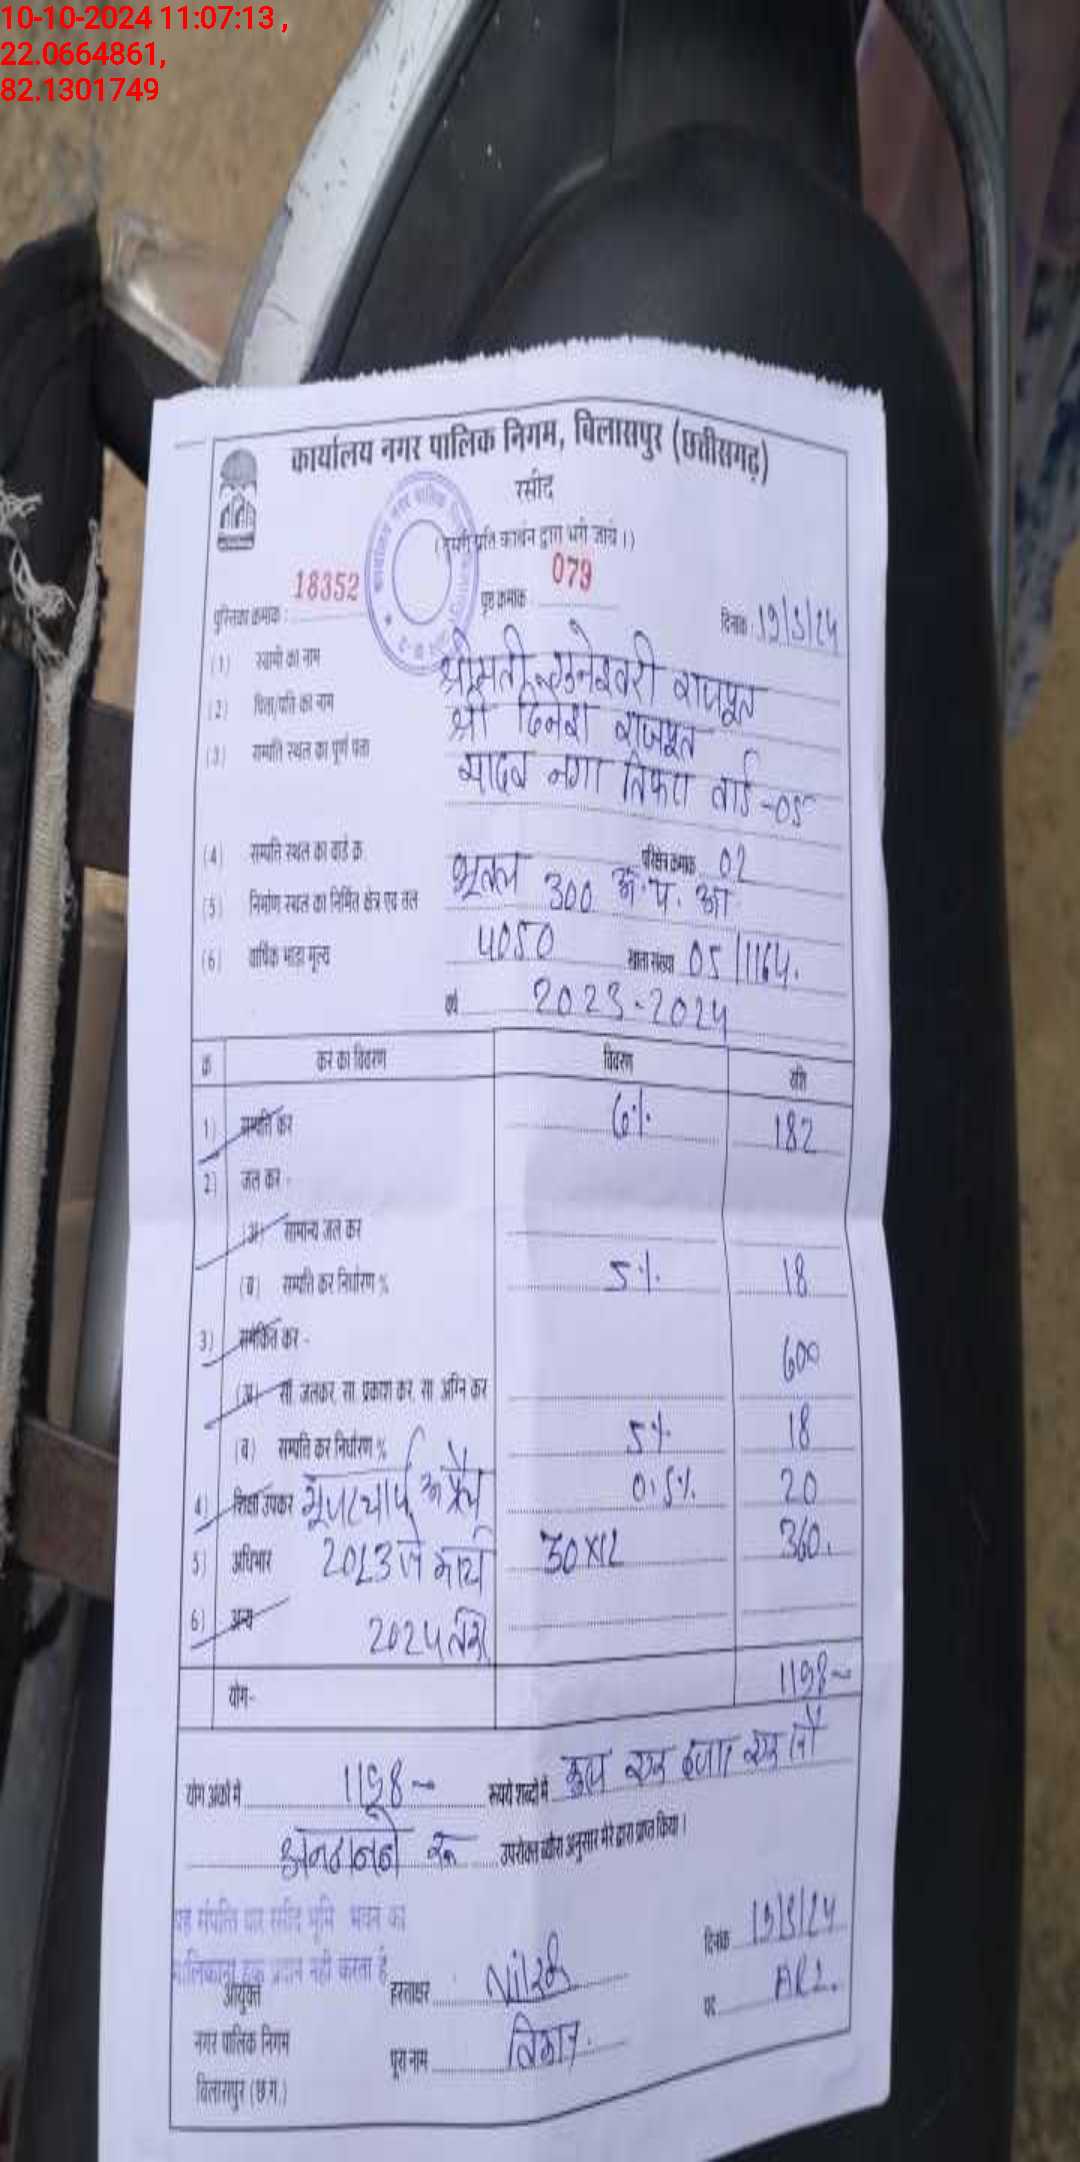 10-10-2024 11:07:13 ,
22.0664861,
82.1301749
कार्यालय नगर पालिक निगम, बिलासपुर (छत्तीसगढ़)
रसीद
प्रति कार्बन द्वारा भरी जाये।)
पुस्तिका क्रमांक : 18352 पृष्ठ क्रमांक 079
दिनांक : 19/3/24
(1) स्वामी का नाम श्रीमती राजपूत
(2) पिता/पति का नाम श्री दिनेश राजपूत
(3) सम्पत्ति स्थल का पूर्ण पता यादव नगर तिफरा वार्ड -05
(4) सम्पत्ति स्थल का वार्ड क्र. परिक्षेत्र क्रमांक 02
(5) निर्माण स्थल का निर्मित क्षेत्र एवं तल भूतल 300
(6) वार्षिक भाड़ा मूल्य 4050 खाता संख्या 05/1164.
वर्ष 2023-2024
क्र कर का विवरण विवरण राशि
1) सम्पत्ति कर 6% 182
2) जल कर -
(अ) सामान्य जल कर
(ब) सम्पत्ति कर निर्धारण % 5% 18
3) समेकित कर - 600
(अ) सा. जलकर, सा. प्रकाश कर, सा. अग्नि कर
(ब) सम्पत्ति कर निर्धारण % 5% 18
4) शिक्षा उपकर यूजरचार्ज अप्रैल 0.5% 20
5) अधिभार 2023 से मार्च 30X12 360.
6) अन्य 2024 तक
योग- 1198~
योग अंकों में 1198~ रूपये शब्दों में कुल एक हजार एक सौ
अनठानबे रू उपरोक्त ब्यौरा अनुसार मेरे द्वारा प्राप्त किया।
यह संपत्ति कर रसीद भूमि भवन का
मालिकाना हक प्रदान नही करता है
दिनांक 19/3/24
आयुक्त हस्ताक्षर
पद ARI.
नगर पालिक निगम पूरा नाम
बिलासपुर (छ.ग.)